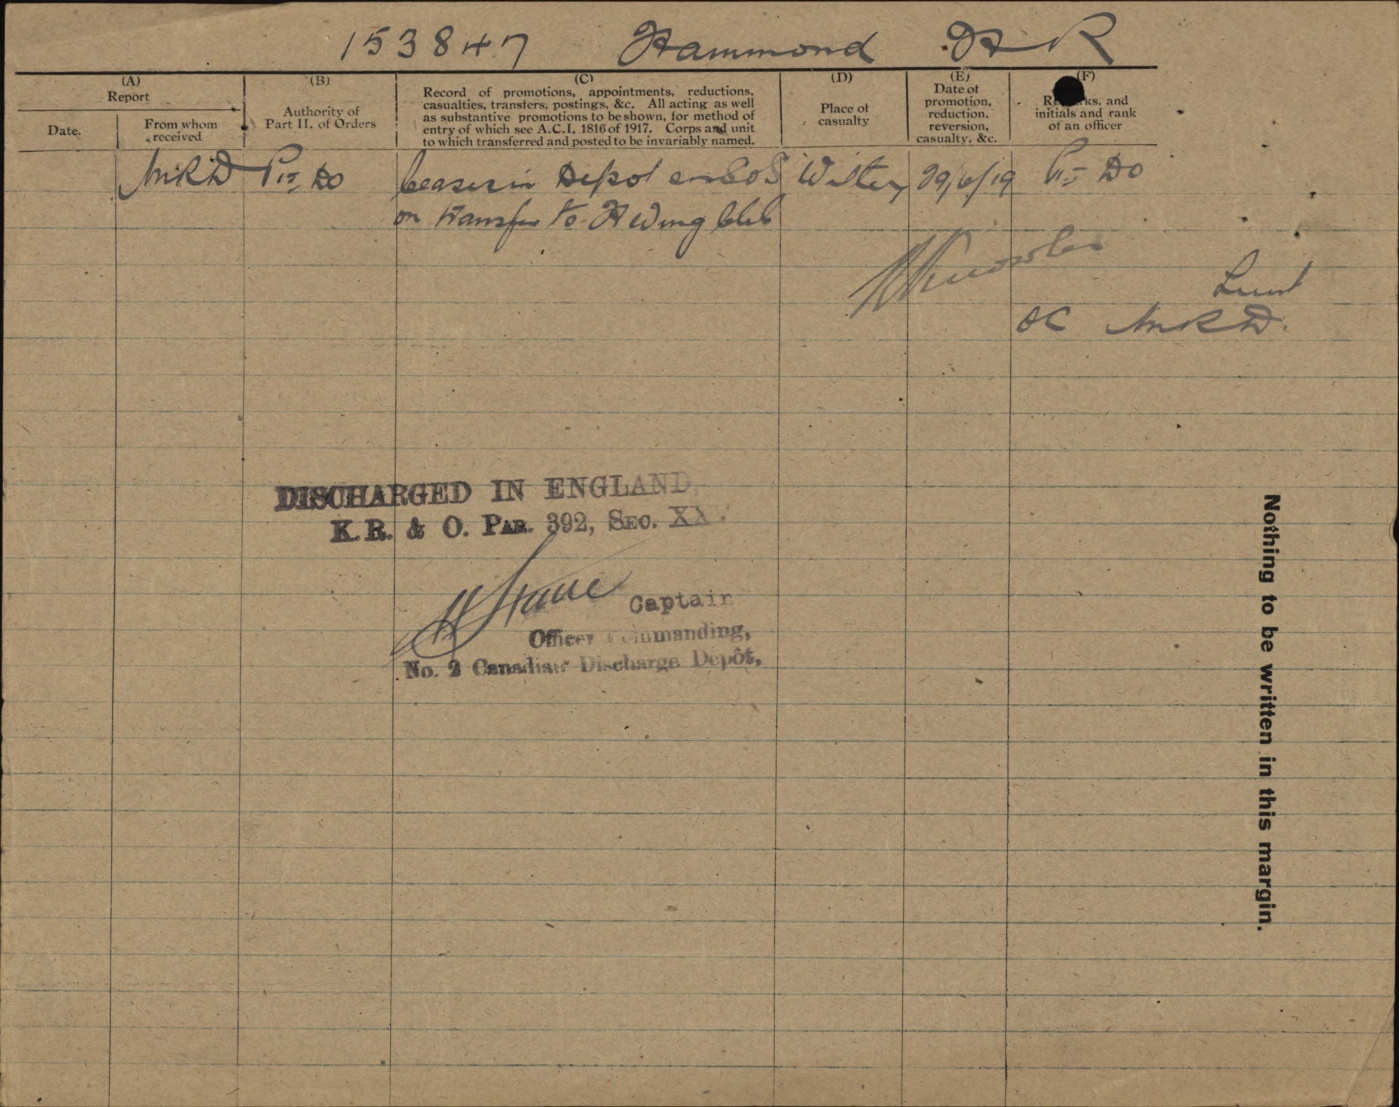 153847 Hammond H R
(A) (B) (C) (D) (E) (F)
Report
Date. From whom received
Authority of Part II. of Orders
Record of promotions, appointments, reductions,
casualties, transfers, postings, &c. All acting as well
as substantive promotions to be shown, for method of
entry of which see A.C.I. 1816 of 1917. Corps and unit
to which transferred and posted to be invariably named.
Place of casualty
Date of
promotion,
reduction,
reversion,
casualty, &c.
Remarks, and
initials and rank
of an officer
MRD Pt II DO Ceases in Depot on SOS Witley 29/6/19 Pt II DO
on transfer to H Wing
Knowles
Lieut
OC MRD.
DISCHARGED IN ENGLAND,
K.R. & O. PAR. 392, SEC.
Captain
Officer Commanding,
No. 2 Canadian Discharge Depôt,
Nothing to be written in this margin.